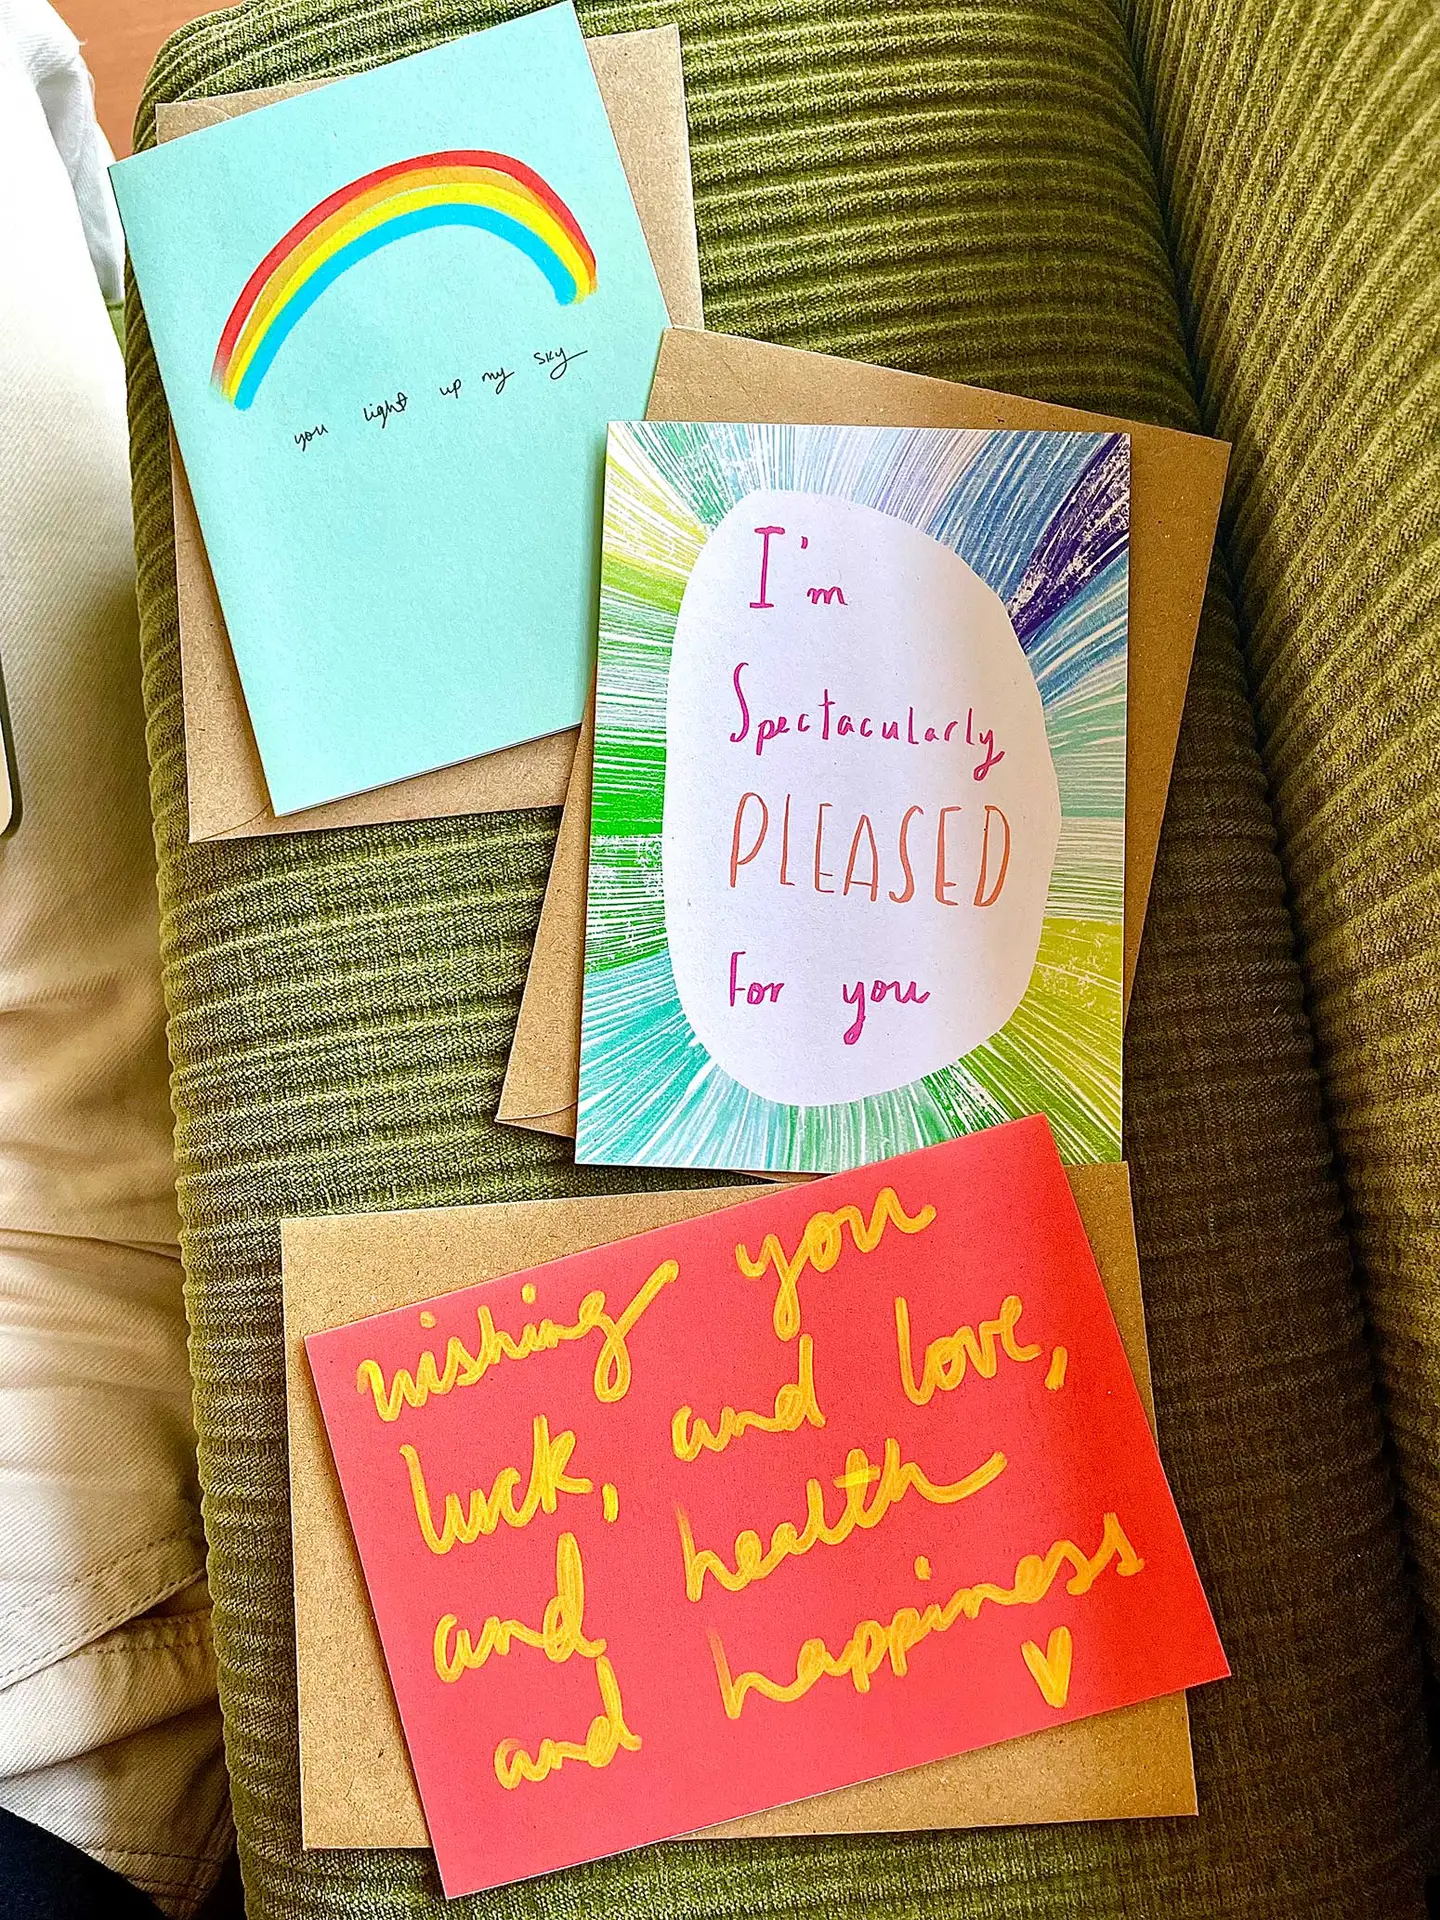 you light up my sky
I'm
Spectacularly
PLEASED
For you
wishing you
luck, and love,
and health
and happiness